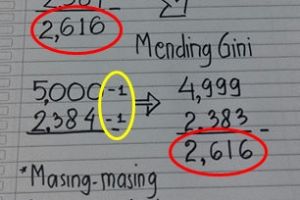 2,616
Mending Gini
5,000 -1 → 4,999
2,384 -1 2,383 -
2,616
*Masing-masing